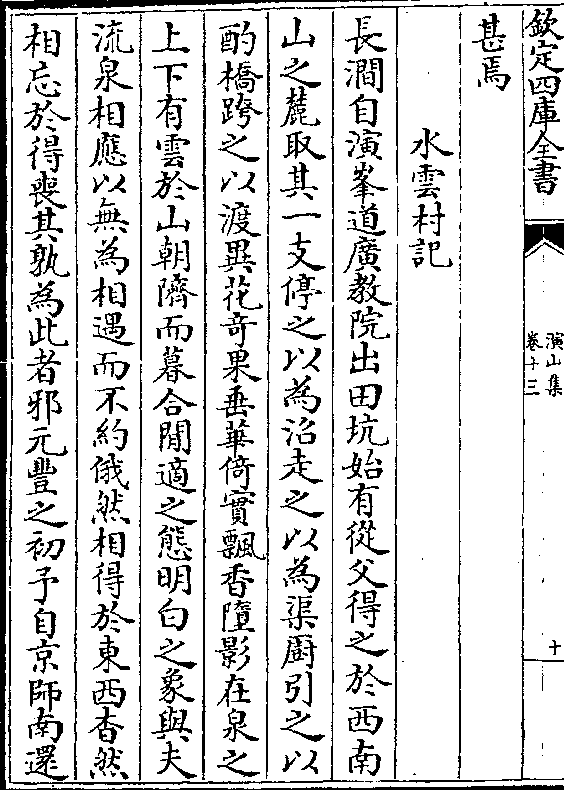 欽定四庫全書
演山集
卷十三
十
甚焉
水雲村記
長澗自演峯道廣教院出田坑始有從父得之於西南
山之麓取其一支停之以為沼走之以為渠㕑引之以
酌橋跨之以渡異花奇果垂華倚實飄香墮影在泉之
上下有雲於山朝隮而暮合閒適之態明白之象與夫
流泉相應以無為相遇而不約俄然相得於東西杳然
相忘於得喪其孰為此者邪元豐之初予自京師南還